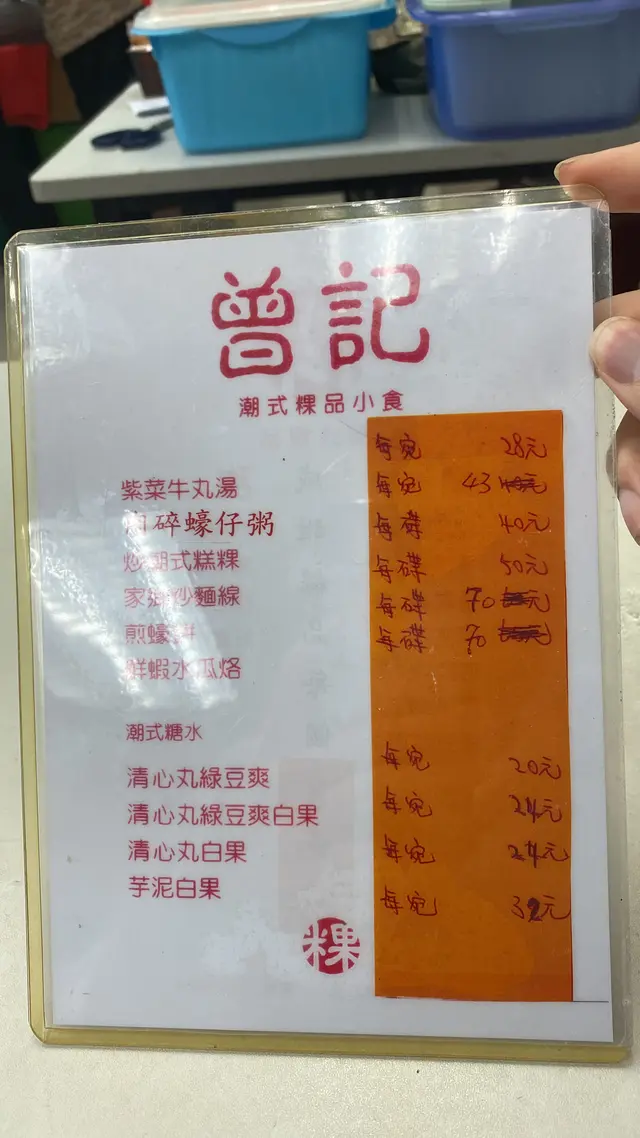 曾記
潮式粿品小食
紫菜牛丸湯 每宛 28元
肉碎蠔仔粥 每宛 43
炒潮式糕粿 每碟 40元
家鄉炒麵線 每碟 50元
煎蠔餅 每碟 70 元
鮮蝦水瓜烙 每碟 70
潮式糖水
清心丸綠豆爽 每宛 20元
清心丸綠豆爽白果 每宛 24元
清心丸白果 每宛 24元
芋泥白果 每宛 32元
粿